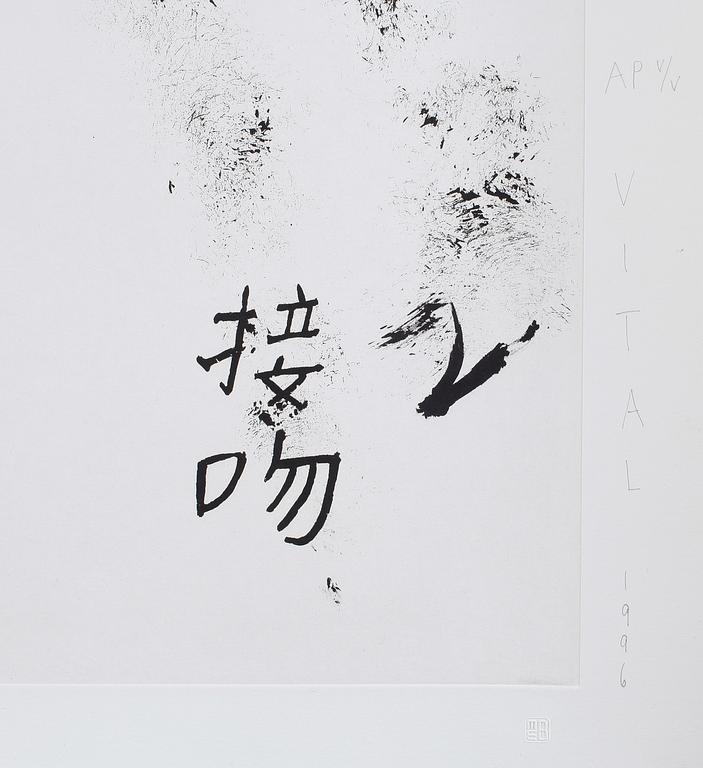 接吻
AP V/V
VITAL
1996